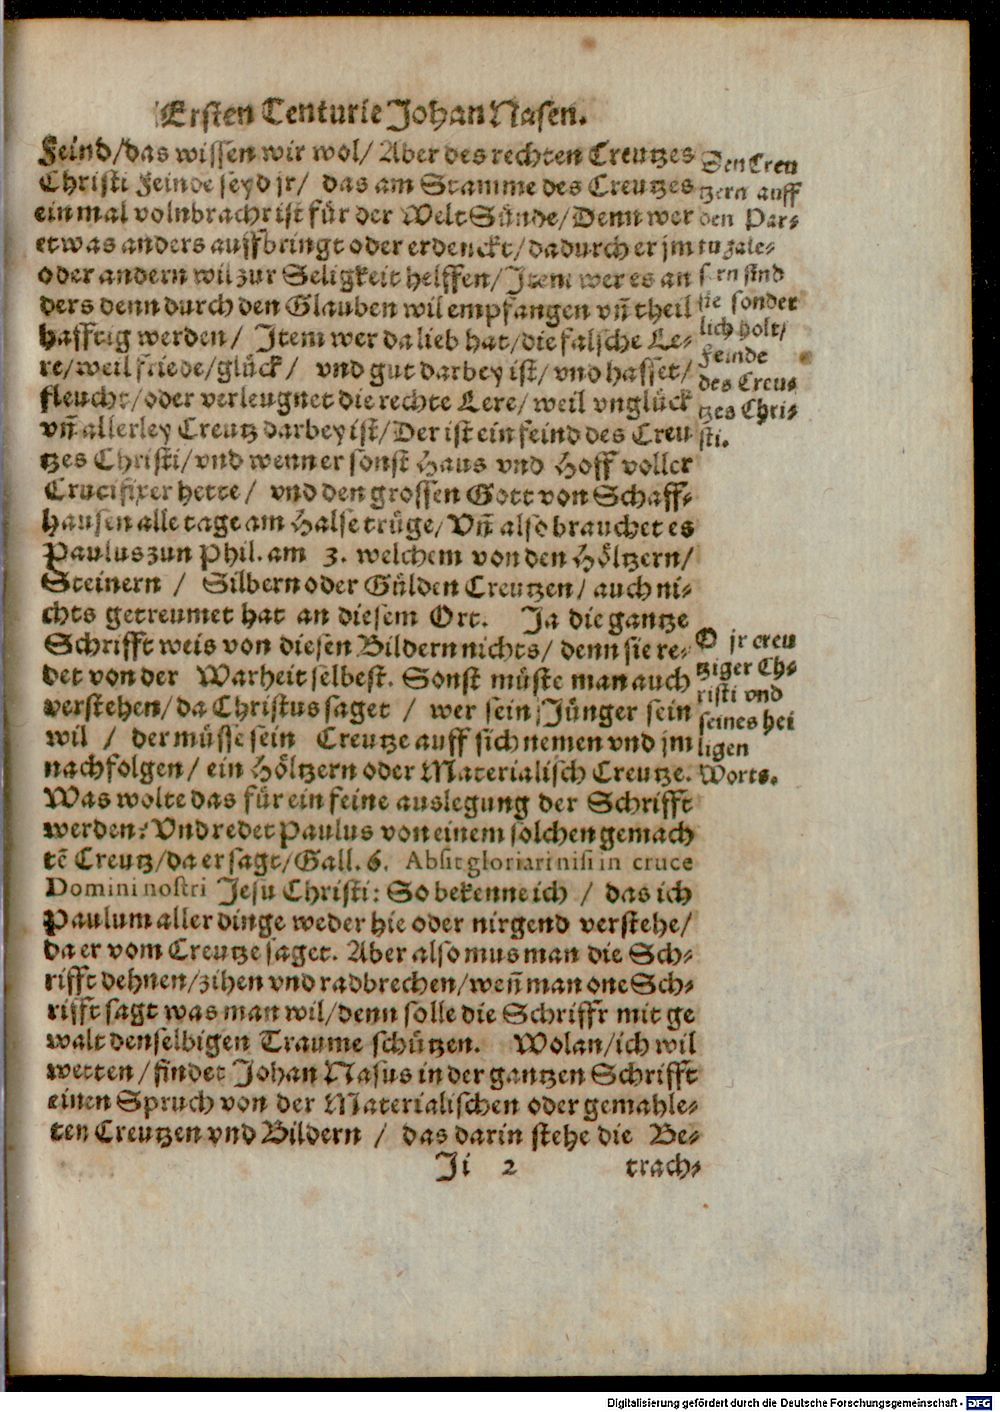 Ersten Centurie Johan Nasen.
Feind/das wissen wir wol/ Aber des rechten Creutzes
Christi Feinde seyd jr/ das am Stamme des Creutzes
ein mal volnbracht ist für der Welt Sünde/Denn wer
etwas anders auffbringt oder erdenckt/dadurch er jm
oder andern wil zur Seligkeit helffen/ Item wer es an
ders denn durch den Glauben wil empfangen vn̄ theil
hafftig werden/ Item wer da lieb hat/die falsche Le⸗
re/weil friede/glück/ vnd gut darbey ist/vnd hasset/
fleucht/oder verleugnet die rechte Lere/ weil vnglück
vn̄ allerley Creutz darbey ist/Der ist ein feind des Creu
tzes Christi/vnd wenn er sonst Haus vnd Hoff voller
Crucifixer hette/ vnd den grossen Gott von Schaff⸗
hausen alle tage am Halse trüge/Vn̄ also brauchet es
Paulus zun Phil. am 3. welchem von den Höltzern/
Steinern / Silbern oder Gülden Creutzen/ auch ni⸗
chts getreumet hat an diesem Ort. Ja die gantze
Schrifft weis von diesen Bildern nichts/ denn sie re⸗
det von der Warheit selbest. Sonst müste man auch
verstehen/da Christus saget / wer sein Jünger sein
wil / der müsse sein Creutze auff sich nemen vnd jm
nachfolgen/ ein Höltzern oder Materialisch Creutze.
Was wolte das für ein feine auslegung der Schrifft
werden: Vnd redet Paulus von einem solchen gemach
tē Creutz/da er sagt/Gall. 6. Absit gloriari nisi in cruce
Domini nostri Jesu Christi: So bekenne ich / das ich
Paulum aller dinge weder hie oder nirgend verstehe/
da er vom Creutze saget. Aber also mus man die Sch⸗
rifft dehnen/zihen vnd radbrechen/wen̄ man one Sch⸗
rifft sagt was man wil/denn solle die Schrifft mit ge
walt denselbigen Traume schützen. Wolan/ich wil
wetten/findet Johan Nasus in der gantzen Schrifft
einen Spruch von der Materialischen oder gemahle⸗
ten Creutzen vnd Bildern / das darin stehe die Be⸗
Ji 2 trach⸗
Den Creu
tzern auff
den Par⸗
tu zale⸗
sern sind
sie sonder
lich holt/
Feinde
des Creu⸗
tzes Chri⸗
sti.
O jr creu
tziger Ch⸗
risti vnd
seines hei
ligen
Worts.
Digitalisierung gefördert durch die Deutsche Forschungsgemeinschaft - DFG